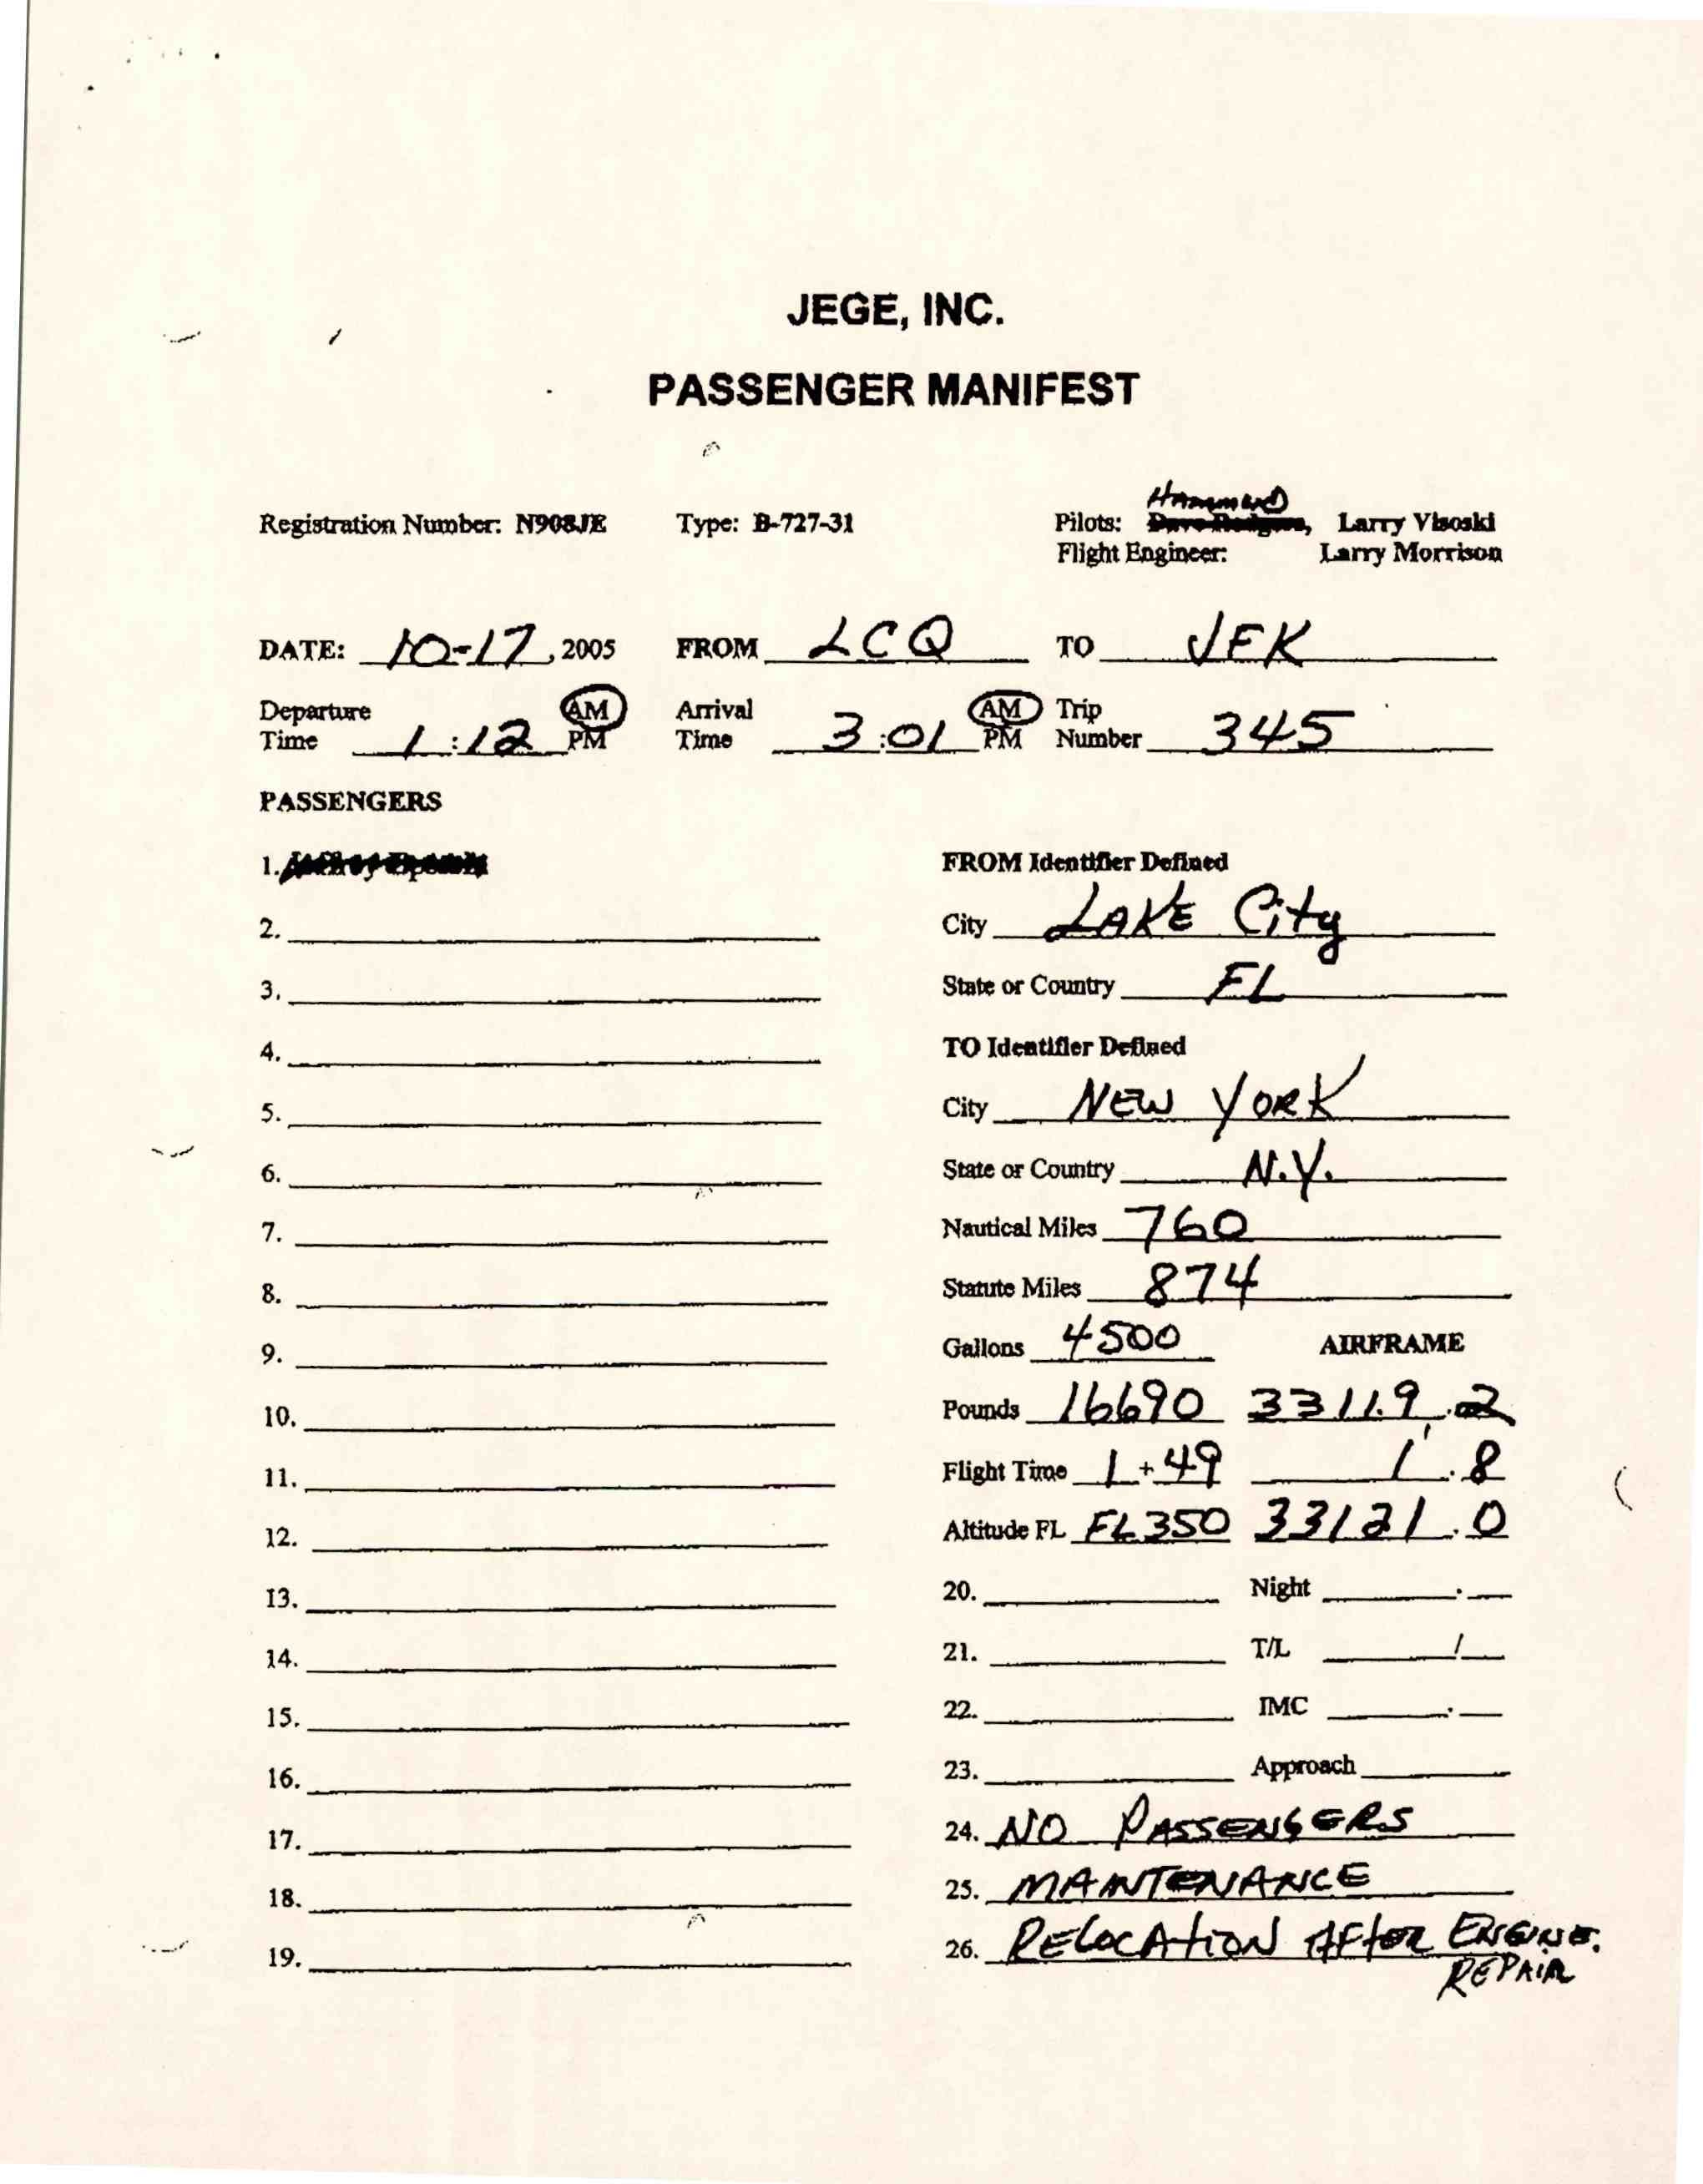 JEGE, INC.
PASSENGER MANIFEST
HAMMOND
Registration Number: N908JE Type: B-727-31 Pilots: Dave Rodgers, Larry Visoski
Flight Engineer: Larry Morrison
DATE: 10-17, 2005 FROM LCQ TO JFK
Departure Time 1:12 AM PM Arrival Time 3:01 AM PM Trip Number 345
PASSENGERS
1.
FROM Identifier Defined
2.
City LAKE City
3.
State or Country FL
4.
TO Identifier Defined
5.
City NEW YORK
6.
State or Country N.Y.
7.
Nautical Miles 760
8.
Statute Miles 874
9.
Gallons 4500 AIRFRAME
10.
Pounds 16690 33119.2
11.
Flight Time 1+49 1.8
12.
Altitude FL FL350 33121.0
13.
20. Night .
14.
21. T/L /
15.
22. IMC .
16.
23. Approach
17.
24. NO PASSENGERS
18.
25. MAINTENANCE
19.
26. RELOCATION AFTER ENGINE.
REPAIR